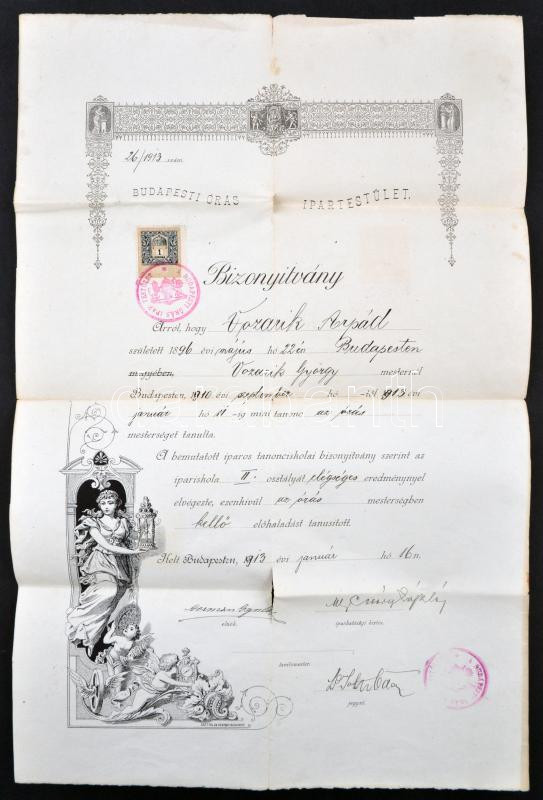 26/1913. szám.
BUDAPESTI ÓRÁS IPARTESTÜLET.
1
BUDAPESTI ÓRÁS IPARTESTÜLET
Bizonyítvány
Arról, hogy Vozarik Árpád
született 1896 évi május hó 22 én Budapesten
megyében, Vozarik György mesternél
Budapesten, 1910 évi szeptember hó -től 1913 évi
január hó -ig mint tanonc az órás
mesterséget tanulta.
A bemutatott iparos tanonciskolai bizonyítvány szerint az
ipariskola II. osztályát elégséges eredménnyel
elvégezte, ezenkívül az órás mesterségben
kellő előhaladást tanusított.
Kelt Budapesten, 1913 évi január hó 16 n.
elnök. iparhatósági biztos.
tanítómester.
jegyző.